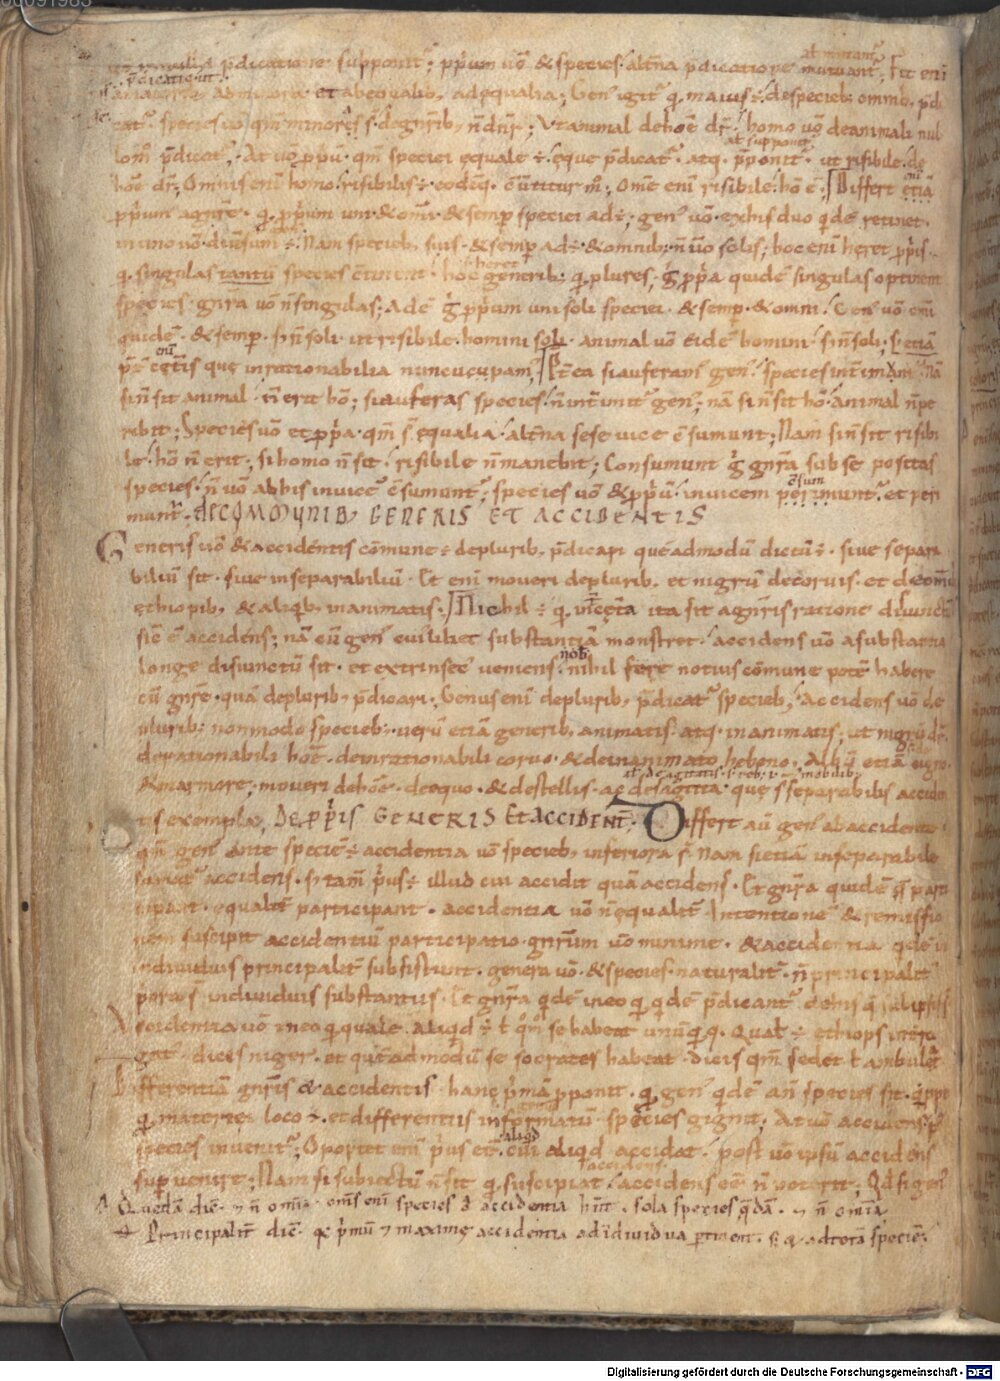 00091983
al mutant᷑
p̄dicatione supponit᷑; ppriū uō & species alt̄na p̄dicatione mutuant᷑. Fit eni
et abęqualib; adęqualia; Gen᷒ igit᷑ q, maius ÷ despecieb; omnib; p̄di
cat᷑. species uō qm̄ minores s̄ degn̄rib; n̄ dn̄r; Vt animal dehoē dr̄. homo uō deanimali nul
al supponit᷑
lom̄ p̄dicat᷑; At uō ppriū qm̄ speciei ęquale ÷. ęque p̄dicat᷑ atq, p̄ponit᷑ ut risibile de
hōe dr̄; Omnis enī homo risibilis ÷. eodēq, cūtitur m̄; Om̄e enī risibile hō ē. Differt etiā
pprium agn̄re. q, pprium uni & om̄i & semp speciei adē; gen᷒ uō exhis duo qidē retinet
in uno uō diuersum ÷. Nam specieb; suis & semp adē & omnib; n̄ uō solis; hoc enī heret pprīs
q, singulas tantū species continent hoc generib; q, plures; ḡ pp̄a quidē singulas optinent
species gn̄ra uō n̄ singulas; Adē ḡ pprium uni soli speciei & semp & omni. Gen᷒ uō omni
quidē & semp s; n̄ soli ut risibile homini soli animal uō eidē homini s; n̄ soli; s; etiā
cęt̄is quę inrationabilia nuncucupam᷒; P̄t̄ea si auferam᷒ gen᷒ species int̄imūt. Nā
si n̄ sit animal n̄ erit hō; si auferas species n̄ int̄imit᷑ gen᷒; nā si n̄ sit hō animal n̄ pe
ribit; Species uō et pp̄a qm̄ s̄ ęqualia alt̄na sese uice cōsumunt; Nam si n̄ sit risibi
le hō n̄ erit, si homo n̄ sit risibile n̄ manebit; Consumunt ḡ gn̄ra sub se positas
cōsum
species n̄ uō ab his inuicē cōsumunt᷑; species uō & ppriū inuicem perimunt᷑ et peri
munt᷑. DE COMMUNIB; GENERIS ET ACCIDENTIS
Generis uō & accidentis cōmune ÷ deplurib; p̄dicari quēadmodū dictū ÷. siue separa
biliū sit siue inseparabiliū. Et eni moueri deplurib; et nigrū decoruis et deom̄ib
ęthiopib; & aliqib; inanimatis; Nichil ÷ q, int̄ cęt̄a ita sit agn̄ris ratione disiunctū
sic ē accidens; nā cū gen᷒ cuiuslibet substantiā monstret. accidens uō asubstantia
nob̄
longe disiunctū sit et extrinsec᷒ ueniens nihil fere notius cōmune potē habere
cū gn̄re quā deplurib; p̄dicari. Genus eni deplurib; p̄dicat᷑ specieb; Accidens uō de
plurib; nonmodo specieb; uerū etiā generib; animatis atq, inanimatis ut nigrū dr̄
derationabili hōe deinrationabili coruo & deinanimato hebeno. Albū etiā cigno
& marmore; moueri dehōe deequo & destellis ac desagitta quę s̄ separabilis acciden
tis exempla; DE pprīs GENERIS Et ACCIDENT̄. Differt aū gen᷒ abaccidente
qm̄ gen᷒ ante speciē ÷ accidentia uō specieb; inferiora s̄. Nam si etiā inseparabile
sumat᷑ accidens s; tam̄ p̄us ÷ illud cui accidit quā accidens. Et gn̄ra quidē q̄ parti
cipant ęqualit᷑ participant accidentia uō n̄ ęqualit᷑. Intentionē & remissio
nem suscipit accidentiū participatio. gn̄rum uō minime & accidentia qidē in
indiuiduis principalit᷑ subsistunt. genera uō & species naturalit᷑ n̄ principalit᷑
priora s̄ indiuiduis substantiis. Et gn̄ra qidē in eo q, qid ē p̄dicant᷑
Accidentia uō in eo q, quale aliqid ÷ t̄ qom̄ se habeat unūqq, Qual᷒ ÷ ethiops int̄ro
gat᷒ dices niger et quēadmodū se socrates habeat dicis qm̄ sedet t̄ ambulat
Differentiā gn̄ris & accidentis hanc p̄mā pponit. q, gen᷒ qidē ante species sit qippe
q, materię loco ÷. et differentiis informatū species gignit. At uō accidens p᷒
aliqd
species inuenit᷑; Oportet enī p̄us eē cui aliqd accidat. post uō ipsū accidens
accidens
superuenire; Nam si subiectū n̄ sit q, suscipiat accidens eē n̄ poterit; Qd̄ si gen᷒
Quedā dic̄ ⁊ n̄ omia omīs enī species & accidentia hn̄t. sola species q̄dā ⁊ n̄ omīa
Principalit᷑ dic̄ qꝛ p̄mū ⁊ maxime accidentia ad īdiuidua p̄tinent. s; ⁊ ad totā speciē.
Digitalisierung gefördert durch die Deutsche Forschungsgemeinschaft - DFG